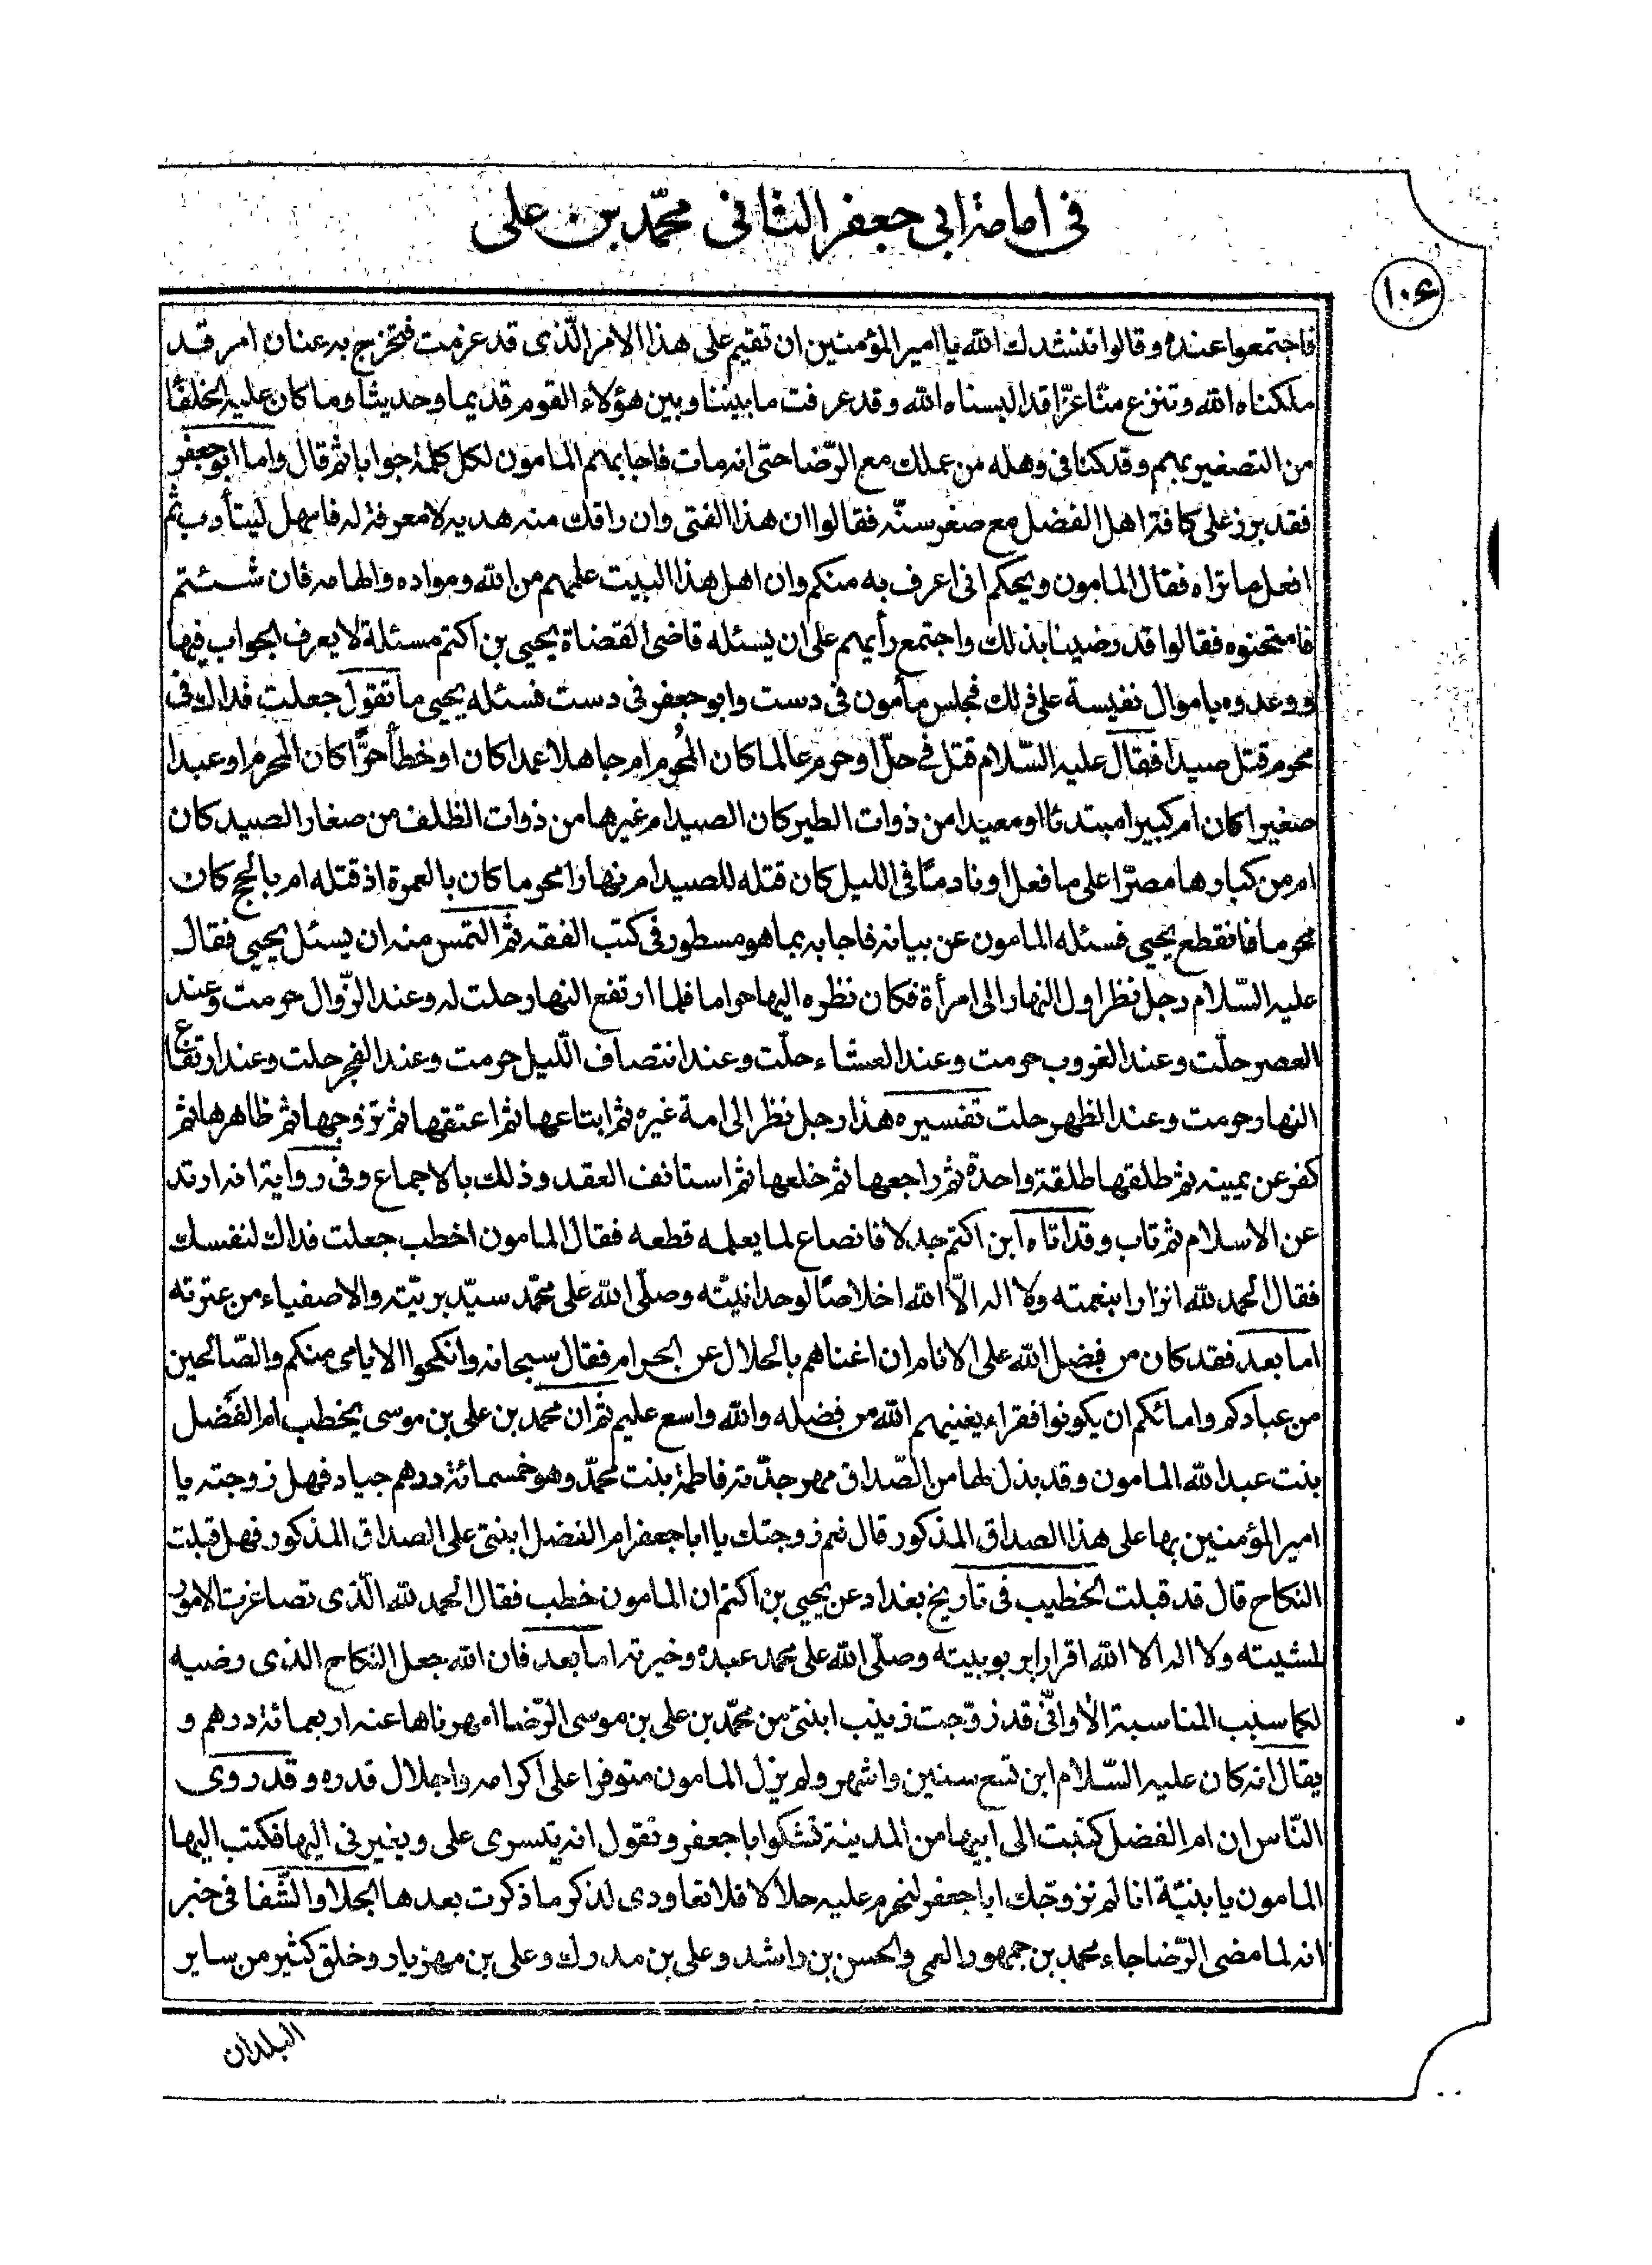 في امامة ابي جعفر الثاني محمّد بن علي
١٠٦
فاجتمعوا عنده وقالوا ننشدك الله يا امير المؤمنين ان تقيم على هذا الامر الّذى قد عزمت فتخرج به عنان امر قد
ملكناه الله وتنزع منّا عزّا قد البسناه الله وقد عرفت ما بيننا وبين هؤلاء القوم قديما وحديثا وما كان عليه الخلفا
من التصغير بهم وقد كنا فى وهله من عملك مع الرّضا حتى انه مات فاجابهم المامون لكل كلمة جوابا ثم قال واما ابو جعفر
فقد برز على كافة اهل الفضل مع صغر سنّه فقالوا ان هذا الفتى وان راقك منه هديه لا معرفة له فامهل ليتأدب ثم
افعل ما تراه فقال المامون ويحكم انى اعرف به منكم وان اهل هذا البيت علمهم من الله ومواده والهامه فان شئتم
فامتحنوه فقالوا قد رضينا بذلك واجتمع رأيهم على ان يسئله قاضى القضاة يحيى بن اكثم مسئلة لا يعرف الجواب فيها
ووعدوه باموال نفيسة على ذلك فجلس مأمون فى دست وابو جعفر فى دست فسئله يحيى ما تقول جعلت فداك فى
محرم قتل صيدا فقال عليه السّلام قتل في حلّ او حرم عالما كان المُحرم ام جاهلا عمدا كان او خطأ حرًّا كان المحرم او عبدا
صغيرا كان ام كبيرا مبتدئا او معيدا من ذوات الطير كان الصيد ام غيرها من ذوات الظلف من صغار الصيد كان
ام من كبارها مصرّا على ما فعل او نادمًا فى الليل كان قتله للصيد ام نهارا محرما كان بالعمرة اذ قتله ام بالحج كان
محرما فانقطع يحيى فسئله المامون عن بيانه فاجابه بما هو مسطور فى كتب الفقه ثم التمس منه ان يسئل يحيى فقال
عليه السّلام رجل نظر اول النهار الى امرأة فكان نظره اليها حراما فلما ارتفع النهار حلت له وعند الزّوال حرمت وعند
العصر حلّت وعند الغروب حرمت وعند العشاء حلّت وعند انتصاف الّليل حرمت وعند الفجر حلت وعند ارتفاع
النهار حرمت وعند الظهر حلت تفسيره هذا رجل نظر الى امة غيره ثم ابتاعها ثم اعتقها ثم تزوجها ثم ظاهرها ثم
كفر عن يمينه ثم طلقها طلقة واحدة ثم راجعها ثم خلعها ثم استانف العقد وذلك بالاجماع وفى رواية انه ارتد
عن الاسلام ثم تاب وقد اتاه ابن اكثم جدلا فانصاع لما يعلمه قطعه فقال المامون اخطب جعلت فداك لنفسك
فقال الحمد لله اقرارا بنعمته ولا اله الاّ الله اخلاصًا لوحدانيّته وصلّى الله على محمّد سيّد بريّته والاصفياء من عترته
اما بعد فقد كان من فضل الله على الانام ان اغناهم بالحلال عن الحرام فقال سبحانه وانكحوا الايامى منكم والصّالحين
من عبادكم وامائكم ان يكونوا فقراء يغنيهم الله من فضله والله واسع عليم ثم ان محمد بن على بن موسى يخطب ام الفضل
بنت عبد الله المامون وقد بذل لها من الصّداق مهر جدّته فاطمة بنت محمّد وهو خمسمائة درهم جياد فهل زوجته يا
امير المؤمنين بها على هذا الصداق المذكور قال نعم زوجتك يا ابا جعفر ام الفضل ابنتى على الصداق المذكور فهل قبلت
النكاح قال قد قبلت الخطيب فى تاريخ بغداد عن يحيى بن اكثم ان المامون خطب فقال الحمد لله الّذى تصاغرت الامور
لمشيته ولا اله الا الله اقرارا بربوبيته وصلّى الله على محمد عبده وخيرته اما بعد فان الله جعل النّكاح الذى رضيه
لكما سبب المناسبة الا وانّى قد زوّجت زينب ابنتى من محمّد بن على بن موسى الرّضا امهرناها عنه اربعمائة درهم و
يقال انه كان عليه السّلام ابن تسع سنين واشهر ولم يزل المامون متوفرا على اكرامه واجلال قدره وقد روى
النّاس ان ام الفضل كتبت الى ابيها من المدينة تشكوا با جعفر وتقول انه يتسرى على ويغيرنى اليها فكتب اليها
المامون يا بنيّة انا لم نزوجّك ابا جعفر لنحرم عليه حلالا فلا تعاودى لذكر ما ذكرت بعدها الجلا والشّفا فى خبر
انه لما مضى الرّضا جاء محمد بن جمهور العمى والحسن بن راشد وعلى بن مدرك وعلى بن مهزيار وخلق كثير من ساير
البلدان